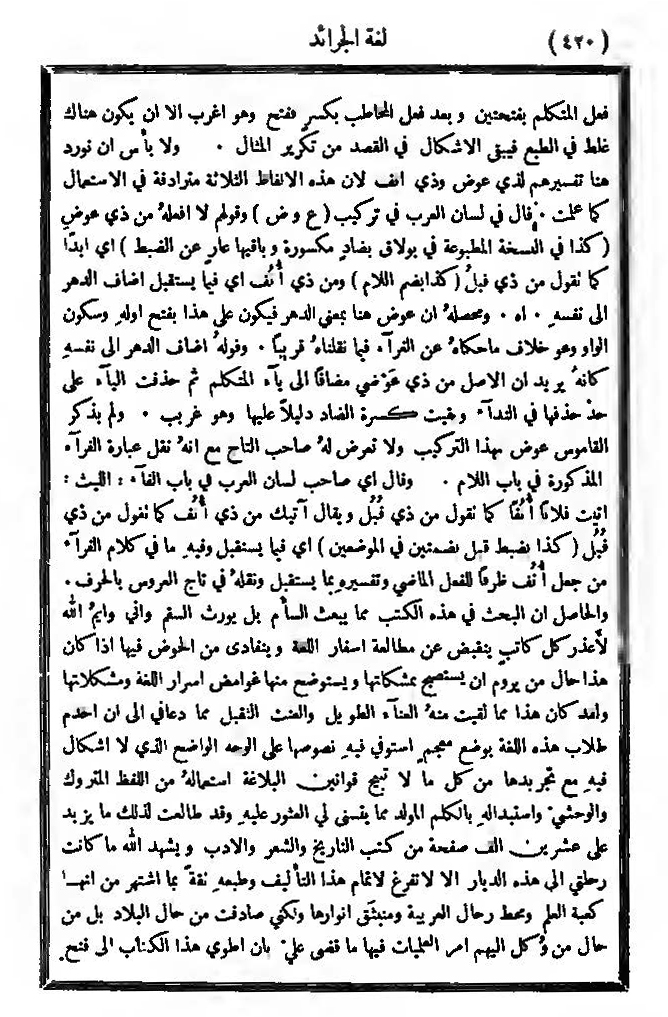 ( ٤٢٠ ) لغة الجرائد
فعل المتكلم بفتحتين وبعد فعل المخاطب بكسرٍ ففتح وهو اغرب الا ان يكون هناك
غلط في الطبع فيبقى الاشكال في القصد من تكرير المثال ٠ ولا بأس ان نورد
هنا تفسيرهم لذي عوض وذي انف لان هذه الالفاظ الثلاثة مترادفة في الاستعمال
كما علمت ٠ قال في لسان العرب في تركيب ( ع و ض ) وقولهم لا افعلهُ من ذي عوضِ
( كذا في النسخة المطبوعة في بولاق بضادٍ مكسورة وباقيها عارٍ عن الضبط ) اي ابدًا
كما نقول من ذي قبلُ ( كذا بضم اللام ) ومن ذي أُنُف اي فيما يستقبل اضاف الدهر
الى نفسهِ ٠ اه ٠ ومحصلهُ ان عوض هنا بمعنى الدهر فيكون على هذا بفتح اولهِ وسكون
الواو وهو خلاف ما حكاهُ عن الفرآء فيما نقلناهُ قريبًا ٠ وقولهُ اضاف الدهر الى نفسهِ
كانهُ يريد ان الاصل من ذي عَوْضي مضافًا الى يآء المتكلم ثم حذفت اليآء على
حدّ حذفها في الندآء وبقيت كسرة الضاد دليلًا عليها وهو غريب ٠ ولم يذكر
القاموس عوض بهذا التركيب ولا تعرض لهُ صاحب التاج مع انهُ نقل عبارة الفرآء
المذكورة في باب اللام ٠ وقال اي صاحب لسان العرب في باب الفآء : الليث :
اتيت فلانًا أُنُفًا كما نقول من ذي قُبُل ويقال آتيك من ذي أُنُف كما نقول من ذي
قُبُل ( كذا بضبط قبل بضمتين في الموضعين ) اي فيما يستقبل وفيهِ ما في كلام الفرآء
من جعل أُنُف ظرفًا للفعل الماضي وتفسيرهِ بما يستقبل ونقلهُ في تاج العروس بالحرف ٠
والحاصل ان البحث في هذه الكتب مما يبعث السأم بل يورث السقم واني وايمُ الله
لأعذر كل كاتبٍ ينقبض عن مطالعة اسفار اللغة ويتفادى من الخوض فيها اذا كان
هذا حال من يروم ان يستصبح بمشكاتها ويستوضح منها غوامض اسرار اللغة ومشكلاتها
ولقد كان هذا مما لقيت منهُ العنآء الطويل والعنت الثقيل مما دعاني الى ان اخدم
طلاب هذه اللغة بوضع معجمٍ استوفي فيهِ نصوصها على الوجه الواضح الذي لا اشكال
فيهِ مع تجريدها من كل ما لا تبيح قوانين البلاغة استعمالهُ من اللفظ المتروك
والوحشيّ واستبدالهِ بالكلم المولد مما يتسنى لي العثور عليهِ وقد طالعت لذلك ما يزيد
على عشرين الف صفحة من كتب التاريخ والشعر والادب ويشهد الله ما كانت
رحلتي الى هذه الديار الا لاتفرغ لاتمام هذا التأليف وطبعهِ ثقةً بما اشتهر من انها
كعبة العلم ومحط رحال العربية ومنبثَق انوارها ولكني صادفت من حال البلاد بل من
حال من وُكل اليهم امر العلميات فيها ما قضى عليّ بان اطوي هذا الكتاب الى فتحٍ